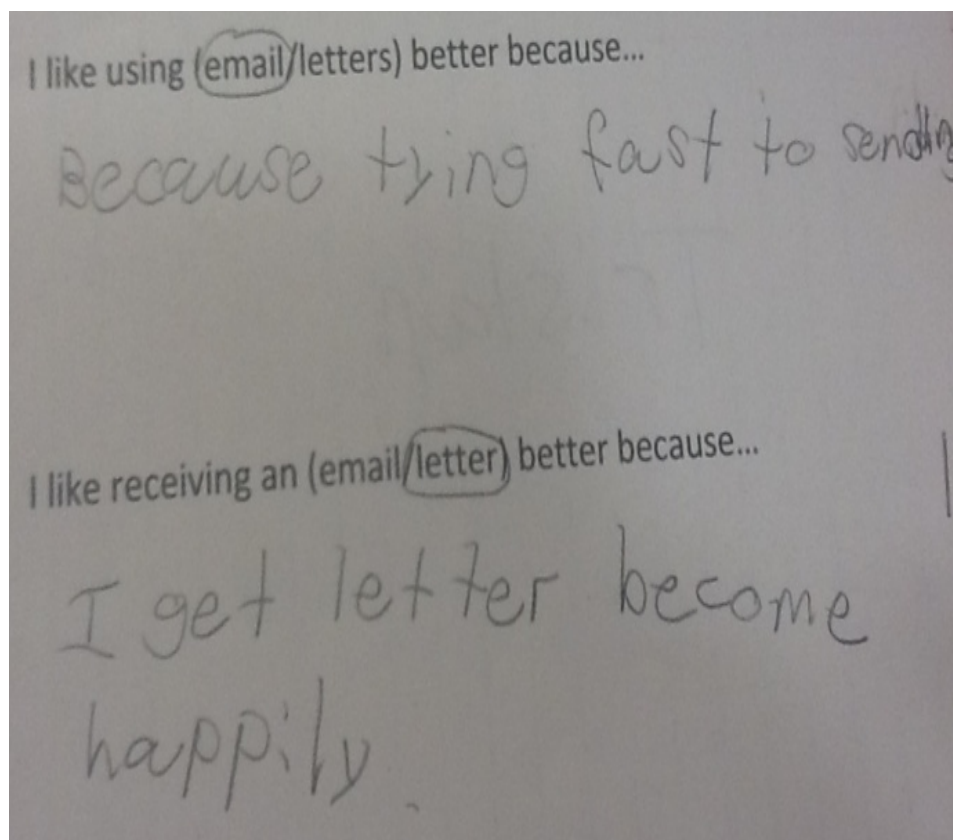 I like using (email/letters) better because...
Because tying fast to sending
I like receiving an (email/letter) better because...
I get letter become
happily.